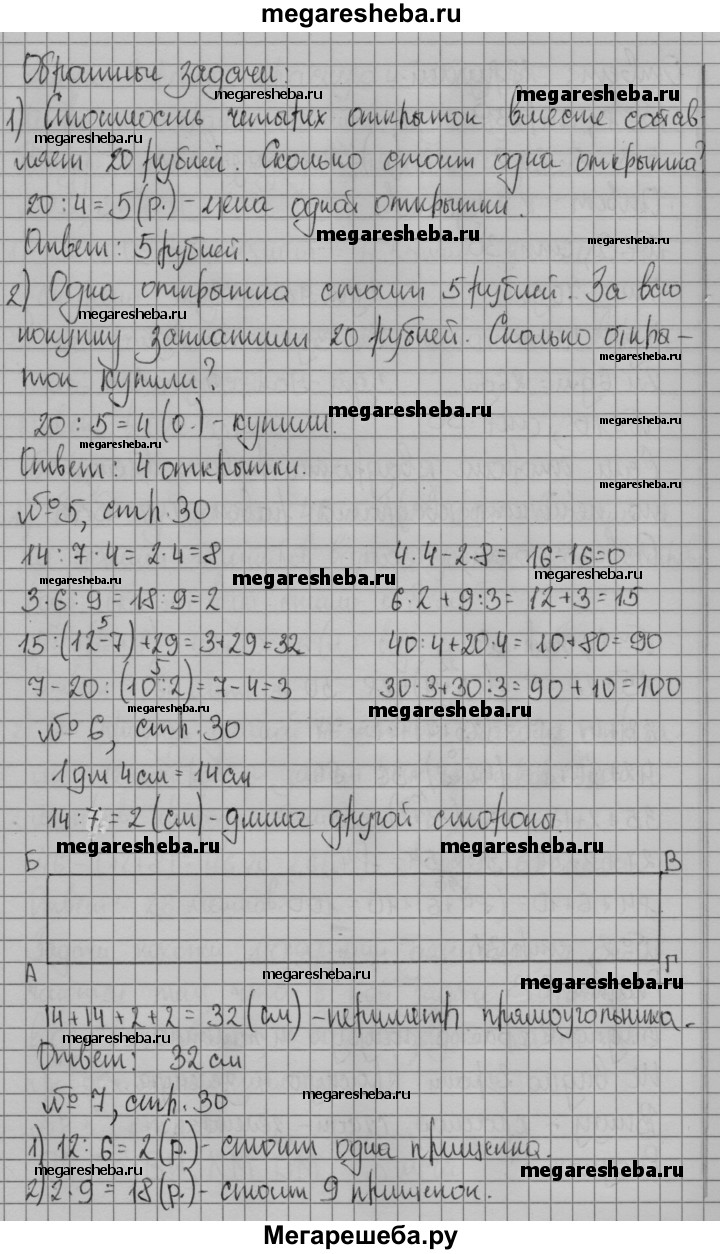 megaresheba.ru
Обратные задачи:
megaresheba.ru megaresheba.ru
1) Стоимость четырех открыток вместе состав-
megaresheba.ru
ляет 20 рублей. Сколько стоит одна открытка?
megaresheba.ru
20 : 4 = 5 (р.) - цена одной открытки.
megaresheba.ru megaresheba.ru
Ответ: 5 рублей.
2) Одна открытка стоит 5 рублей. За всю
megaresheba.ru
покупку заплатили 20 рублей. Сколько откры-
megaresheba.ru
ток купили?
megaresheba.ru
20 : 5 = 4 (о.) - купили.
megaresheba.ru
Ответ: 4 открытки.
megaresheba.ru
№ 5, стр. 30
14 : 7 · 4 = 2 · 4 = 8 4 · 4 - 2 · 8 = 16 - 16 = 0
megaresheba.ru megaresheba.ru megaresheba.ru
3 · 6 : 9 = 18 : 9 = 2 6 · 2 + 9 : 3 = 12 + 3 = 15
5
15 : (12 - 7) + 29 = 3 + 29 = 32 40 : 4 + 20 · 4 = 10 + 80 = 90
5
7 - 20 : (10 : 2) = 7 - 4 = 3 30 · 3 + 30 : 3 = 90 + 10 = 100
megaresheba.ru megaresheba.ru
№ 6, стр. 30
1 дм 4 см = 14 см
14 : 7 = 2 (см) - длина другой стороны.
megaresheba.ru megaresheba.ru
Б В
А Г
megaresheba.ru megaresheba.ru
14 + 14 + 2 + 2 = 32 (см) - периметр прямоугольника.
megaresheba.ru
Ответ: 32 см
megaresheba.ru
№ 7, стр. 30
1) 12 : 6 = 2 (р.) - стоит одна прищепка.
megaresheba.ru megaresheba.ru
2) 2 · 9 = 18 (р.) - стоит 9 прищепок.
Мегарешеба.ру